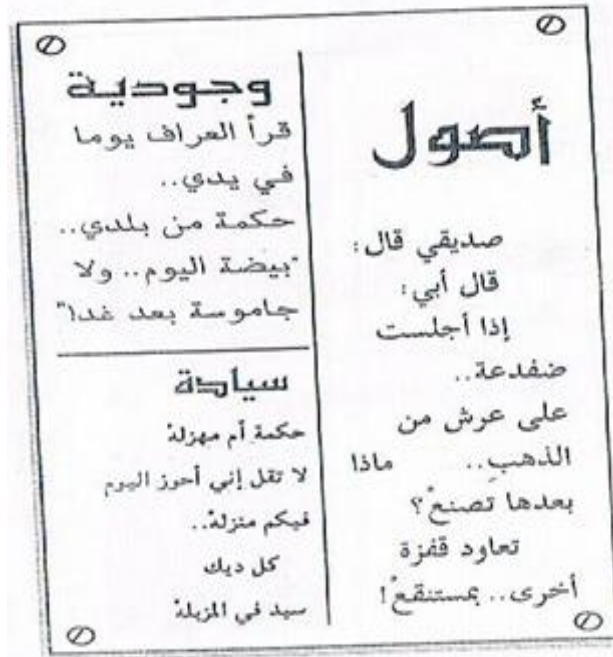 أصول
صديقي قال:
قال أبي:
إذا أجلست
ضفدعة..
على عرش من
الذهبِ.. ماذا
بعدها تصنعْ؟
تعاود قفزة
أخرى.. بمستنقعْ!
وجودية
قرأ العراف يوما
في يدي..
حكمة من بلدي..
"بيضة اليوم.. ولا
جاموسة بعد غد!"
سيادة
حكمة أم مهزلهْ
لا تقل إني أحوز اليوم
فيكم منزلهْ..
كل ديك
سيد في المزبلهْ